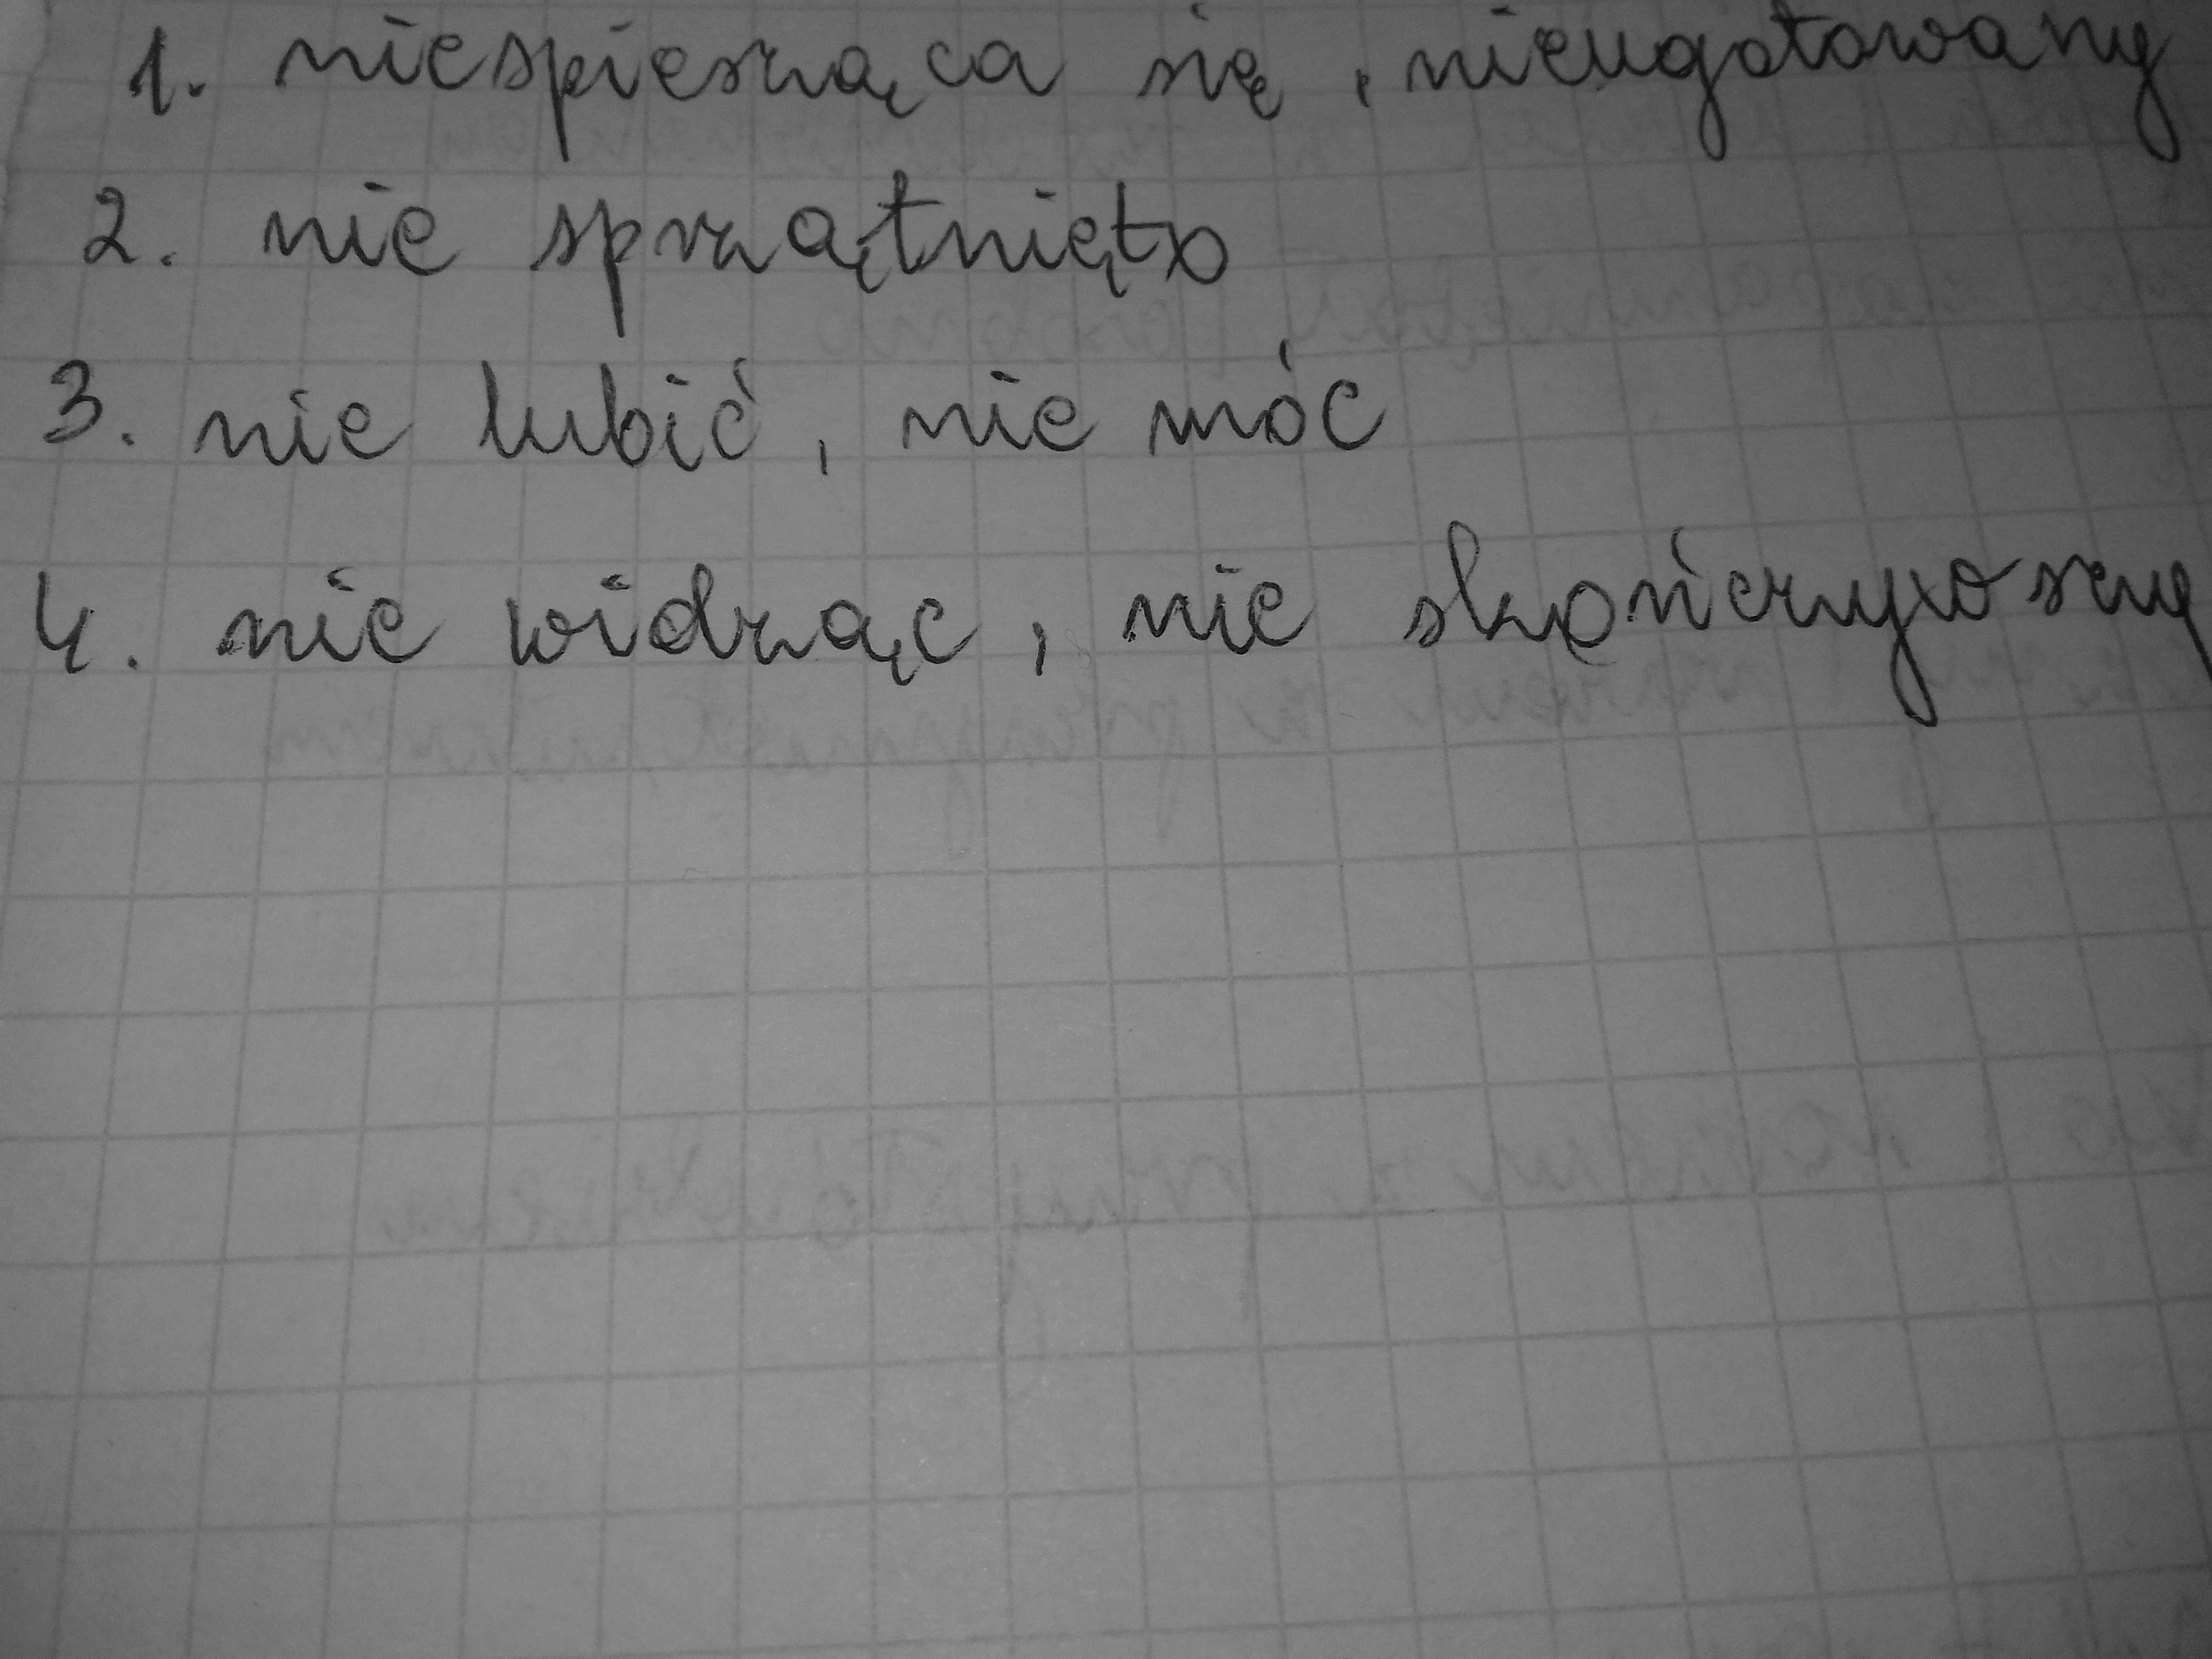 1. niespiesząca się, nieugotowany
2. nie sprzątnięto
3. nie lubić, nie móc
4. nie widząc, nie skończywszy